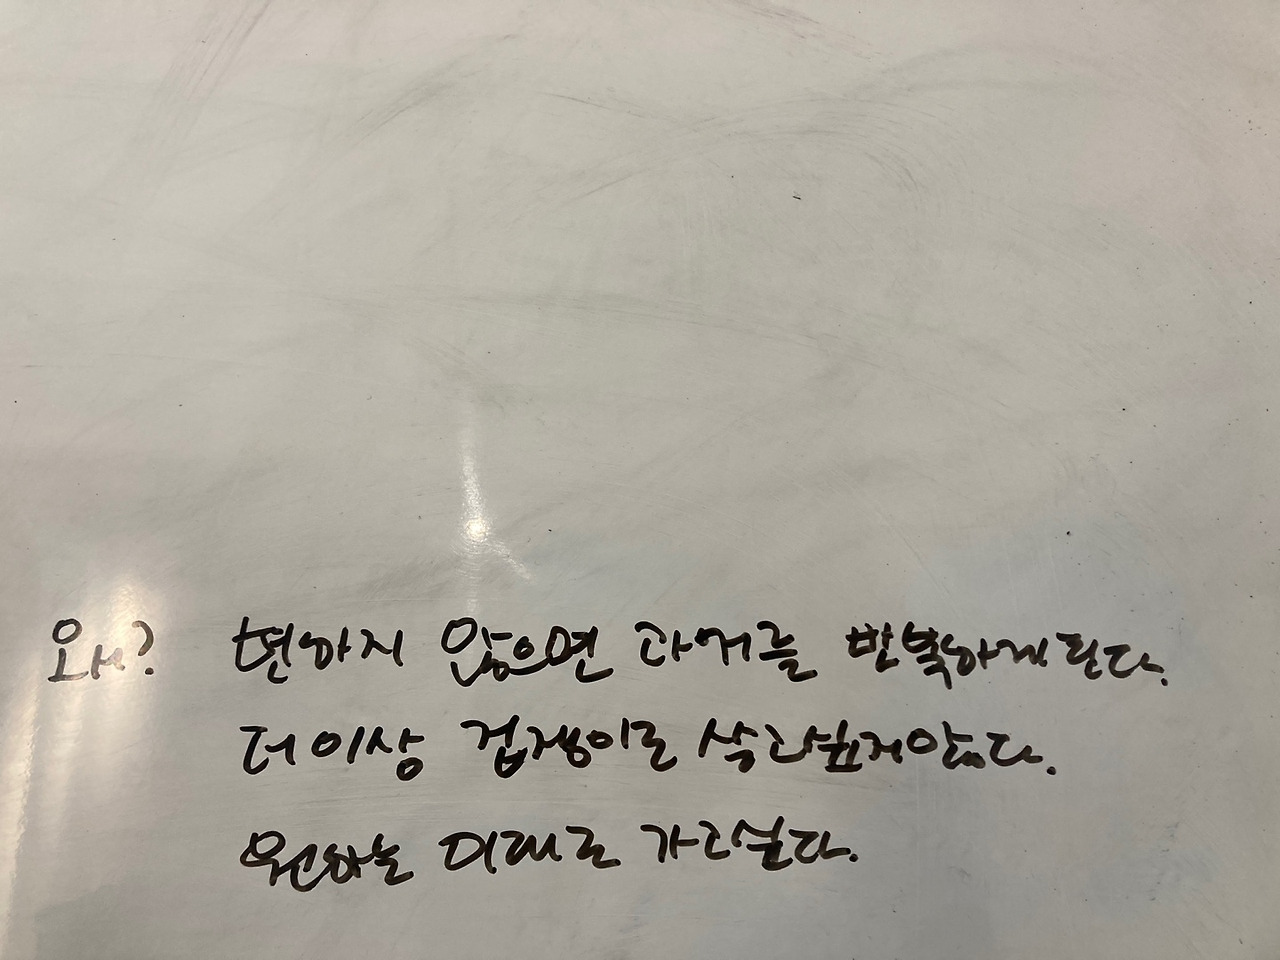 왜? 변하지 않으면 과거를 반복하게 된다.
더 이상 겁쟁이로 살고싶지않다.
원하는 미래로 가고싶다.